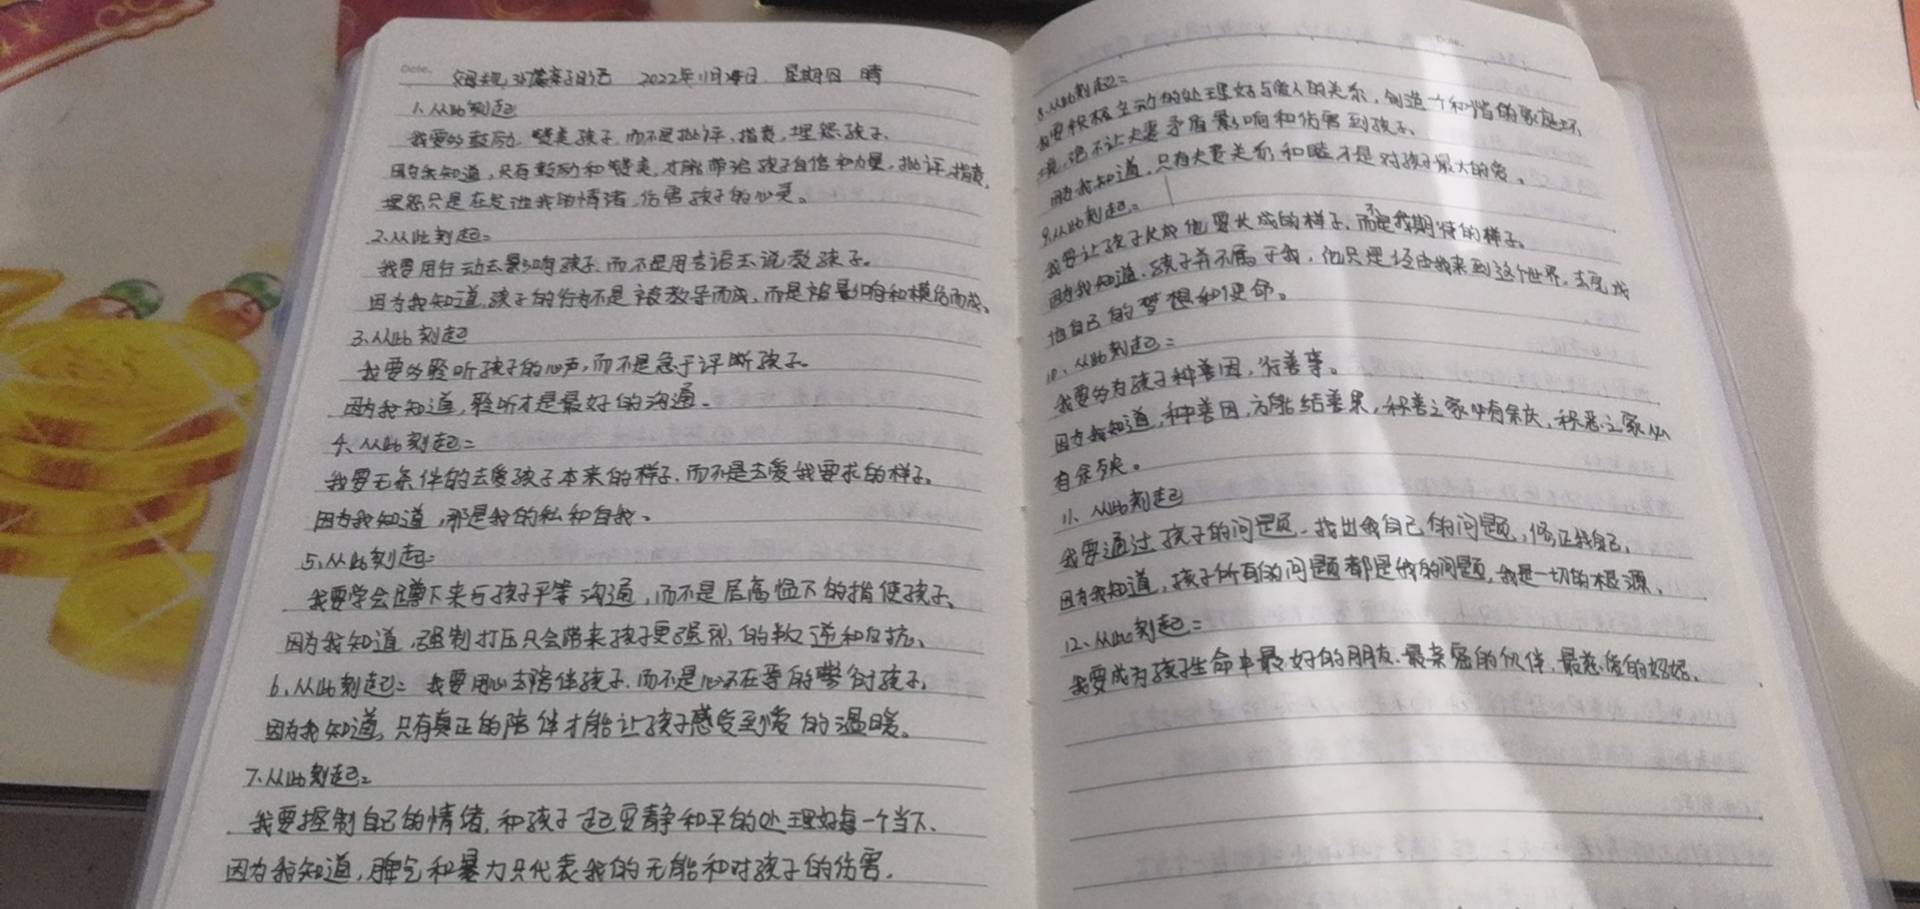 Date.
父母规 36篇亲子日记 2022年11月24日 星期四 晴
1、从此刻起
我要多鼓励、赞美孩子，而不是批评、指责、埋怨孩子、
因为我知道，只有鼓励和赞美，才能带给孩子自信和力量，批评、指责、
埋怨只是在发泄我的情绪，伤害孩子的心灵。
2、从此刻起：
我要用行动去影响孩子，而不是用言语去说教孩子。
因为我知道，孩子的行为不是被教导而成，而是被影响和模仿而成、
3、从此刻起
我要多聆听孩子的心声，而不是急于评断孩子。
因为我知道，聆听才是最好的沟通、
4、从此刻起：
我要无条件的去爱孩子本来的样子，而不是去爱我要求的样子。
因为我知道，那是我的私和自我、
5、从此刻起：
我要学会蹲下来与孩子平等沟通，而不是居高临下的指使孩子、
因为我知道，强制打压只会带来孩子更强烈的叛逆和反抗、
6、从此刻起：我要用心去陪伴孩子，而不是心不在焉的敷衍孩子，
因为我知道，只有真正的陪伴才能让孩子感受到爱的温暖。
7、从此刻起：
我要控制自己的情绪，和孩子一起安静和平的处理好每一个当下、
因为我知道，脾气和暴力只代表我的无能和对孩子的伤害，
Date.
8、从此刻起：
我要积极主动的处理好与爱人的关系，创造一个和谐的家庭环
境，绝不让夫妻矛盾影响和伤害到孩子、
因为我知道，只有夫妻关系和睦才是对孩子最大的爱。
9、从此刻起：
我要让孩子长成他要长成的样子，而不是我期待的样子。
因为我知道，孩子并不属于我，他只是经由我来到这个世界，去完成
他自己的梦想和使命。
10、从此刻起：
我要多为孩子种善因，行善事。
因为我知道，种善因，方能结善果，积善之家必有余庆，积恶之家必
有余殃。
11、从此刻起
我要通过孩子的问题，找出我自己的问题，修正我自己，
因为我知道，孩子所有的问题都是我的问题，我是一切的根源、
12、从此刻起：
我要成为孩子生命中最好的朋友、最亲密的伙伴，最慈爱的妈妈、